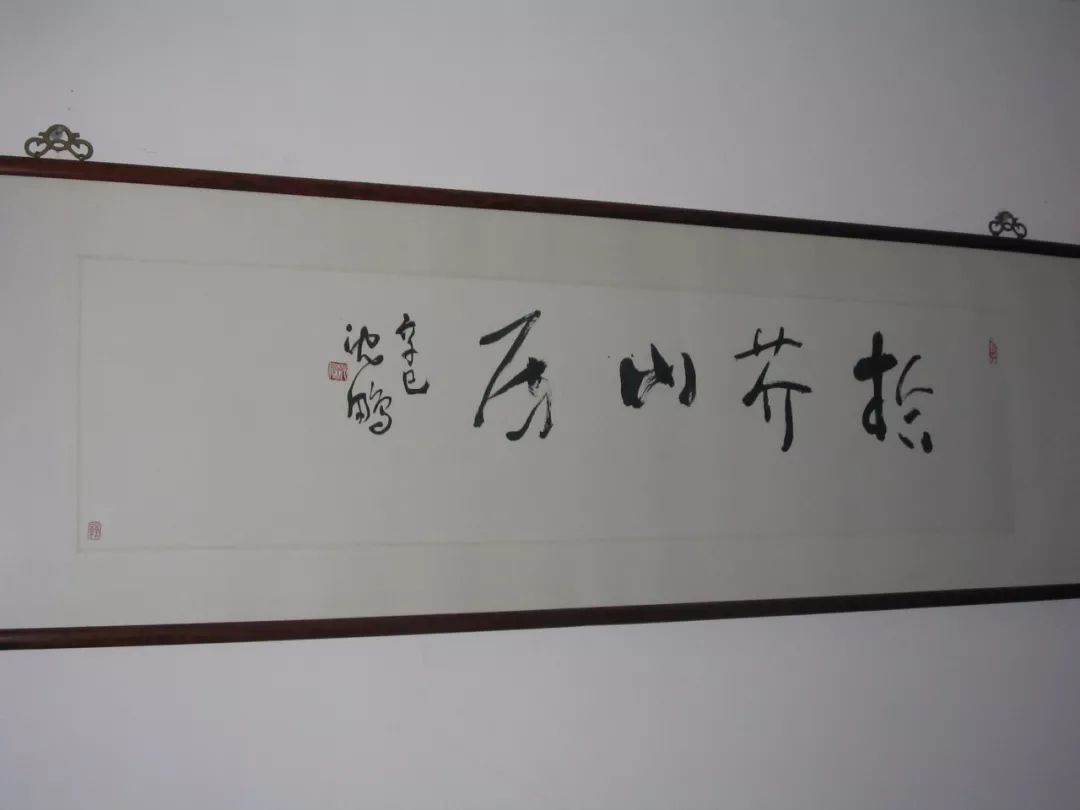 拾芥山居
辛巳
沈鹏